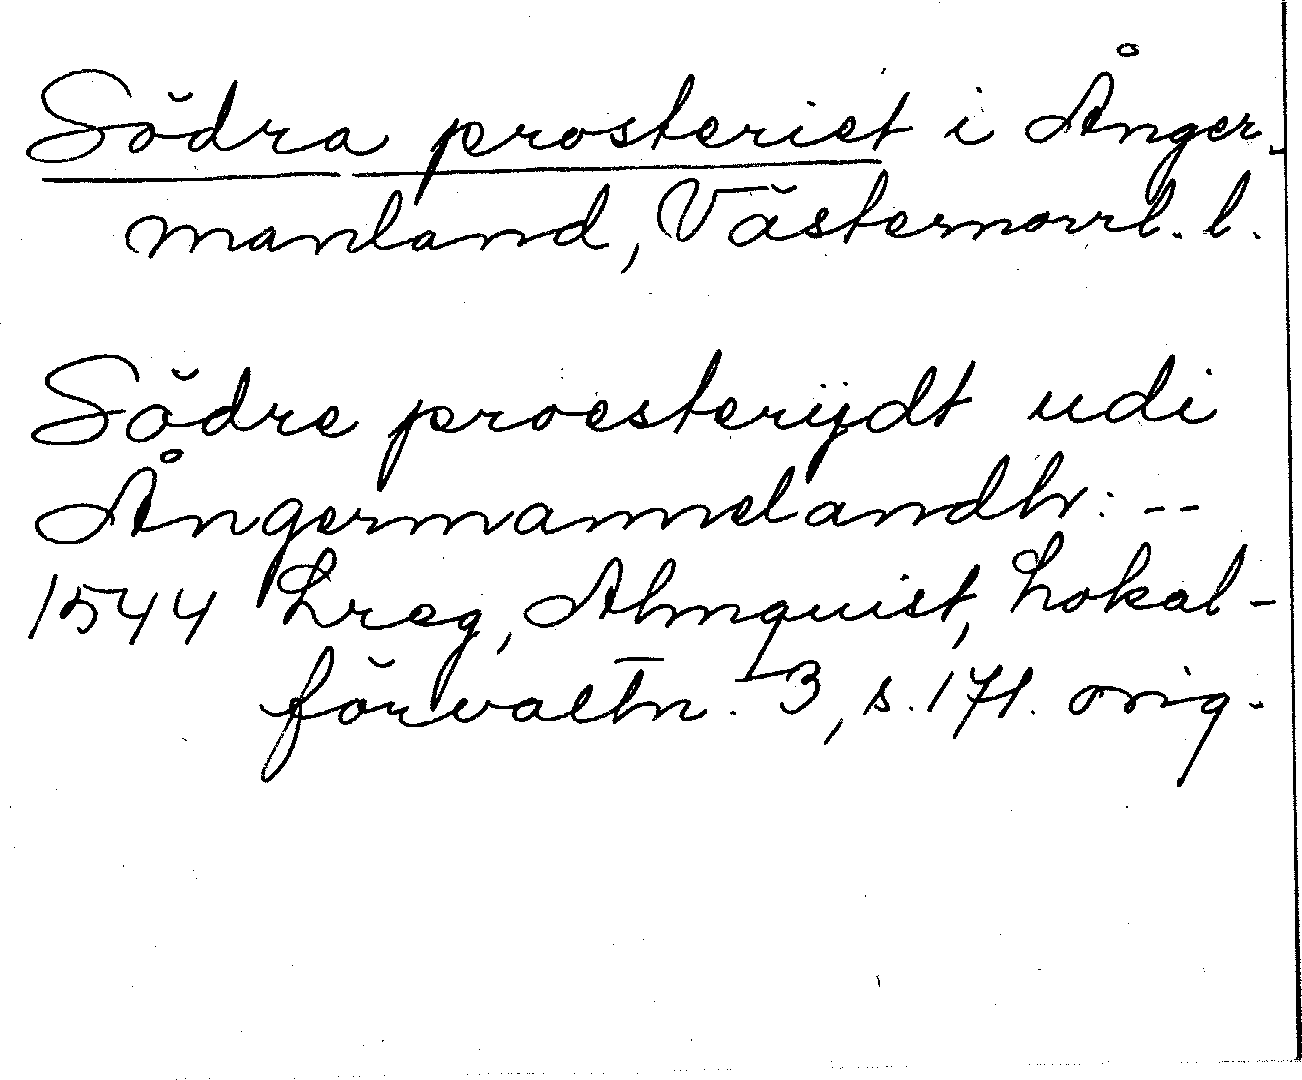 Södra prosteriet i Ånger-
manland, Västernorrl. l.
Södre proesterijdt udi
Ångermannelandh: --
1544 Lreg, Almquist, Lokal-
förvaltn. 3, s. 171. orig.